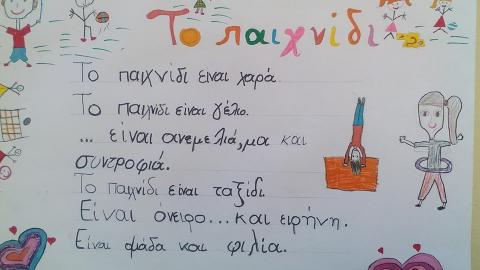 Το παιχνίδι
Το παιχνίδι είναι χαρά
Το παιχνίδι είναι γέλιο.
... είναι ανεμελιά, μα και
συντροφιά.
Το παιχνίδι είναι ταξίδι.
Είναι όνειρο... και ειρήνη.
Είναι ομάδα και φιλία.